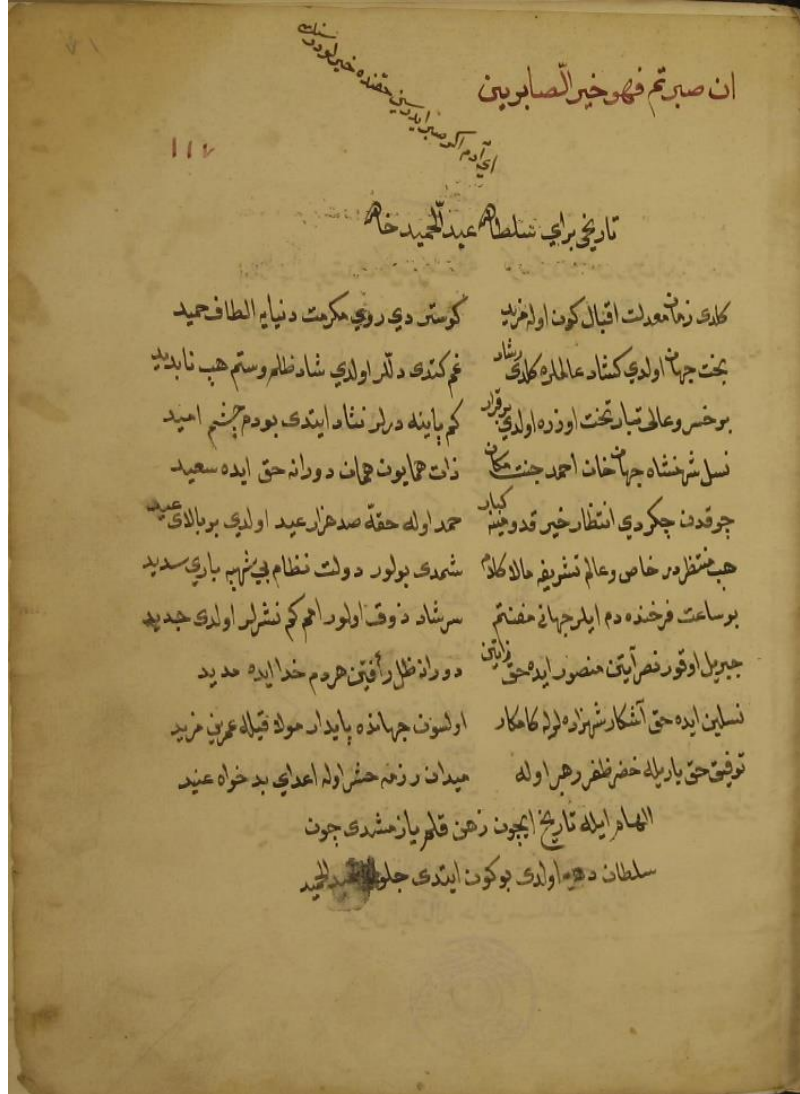 ان صبرتم فهو خير الصابرين
اي آدم اكر صبر ايدرسن حقنده خيرلودر
١١٧
تاريخ براي سلطان عبد الحميد خان
كلدى زمان معدلت اقبال كون اوله مزيد كوستردي روي مكرمت دنيايه الطاف حميد
بخت جهان اولدي كشاد عالملره كلدى رشاد غم كتدى دللر اولدي شاد ظلم وستم هب نابديد
بو خسر وعالى تبار تخت اوزره اولدي برقرار كم پاينه درلر نثار ايتدى بودم چشم اميد
نسل شهنشاه جهان خان احمد جنت مكان ذات همايون همان دورانه حق ايده سعيد
چوقدن چكردي انتظار خير قدومينه كبار حمد اوله حقه صد هزار عيد اولدي بو بالاى عيد
هب منتظردر خاص وعالم تشريفه مالا كلام شمدى بولور دولت نظام بي شبهه باري سديد
بو ساعت فرخنده دم ايلر جهانى مغتنم سرشاد ذوق اولور اهم كم نشرلر اولدى جديد
جبريل اوقور نصر آيتن منصور ايده حق رايتن دوران ظل رأفتين هردم خدا ايده مديد
نسلين ايده حق آشكار شهزاده لرله كامكار اولسون جهانده پايدار مولا قيله عمرين مزيد
توفيق حق ياريله خضر ظفر رهبر اوله ميدان رزمه حشر اوله اعداي بد خواه عنيد
الهام ايله تاريخ ايچون ذهن قلم يازمشدى چون
سلطان دهر اولدى بوكون ايتدى جلوس عبد الحميد